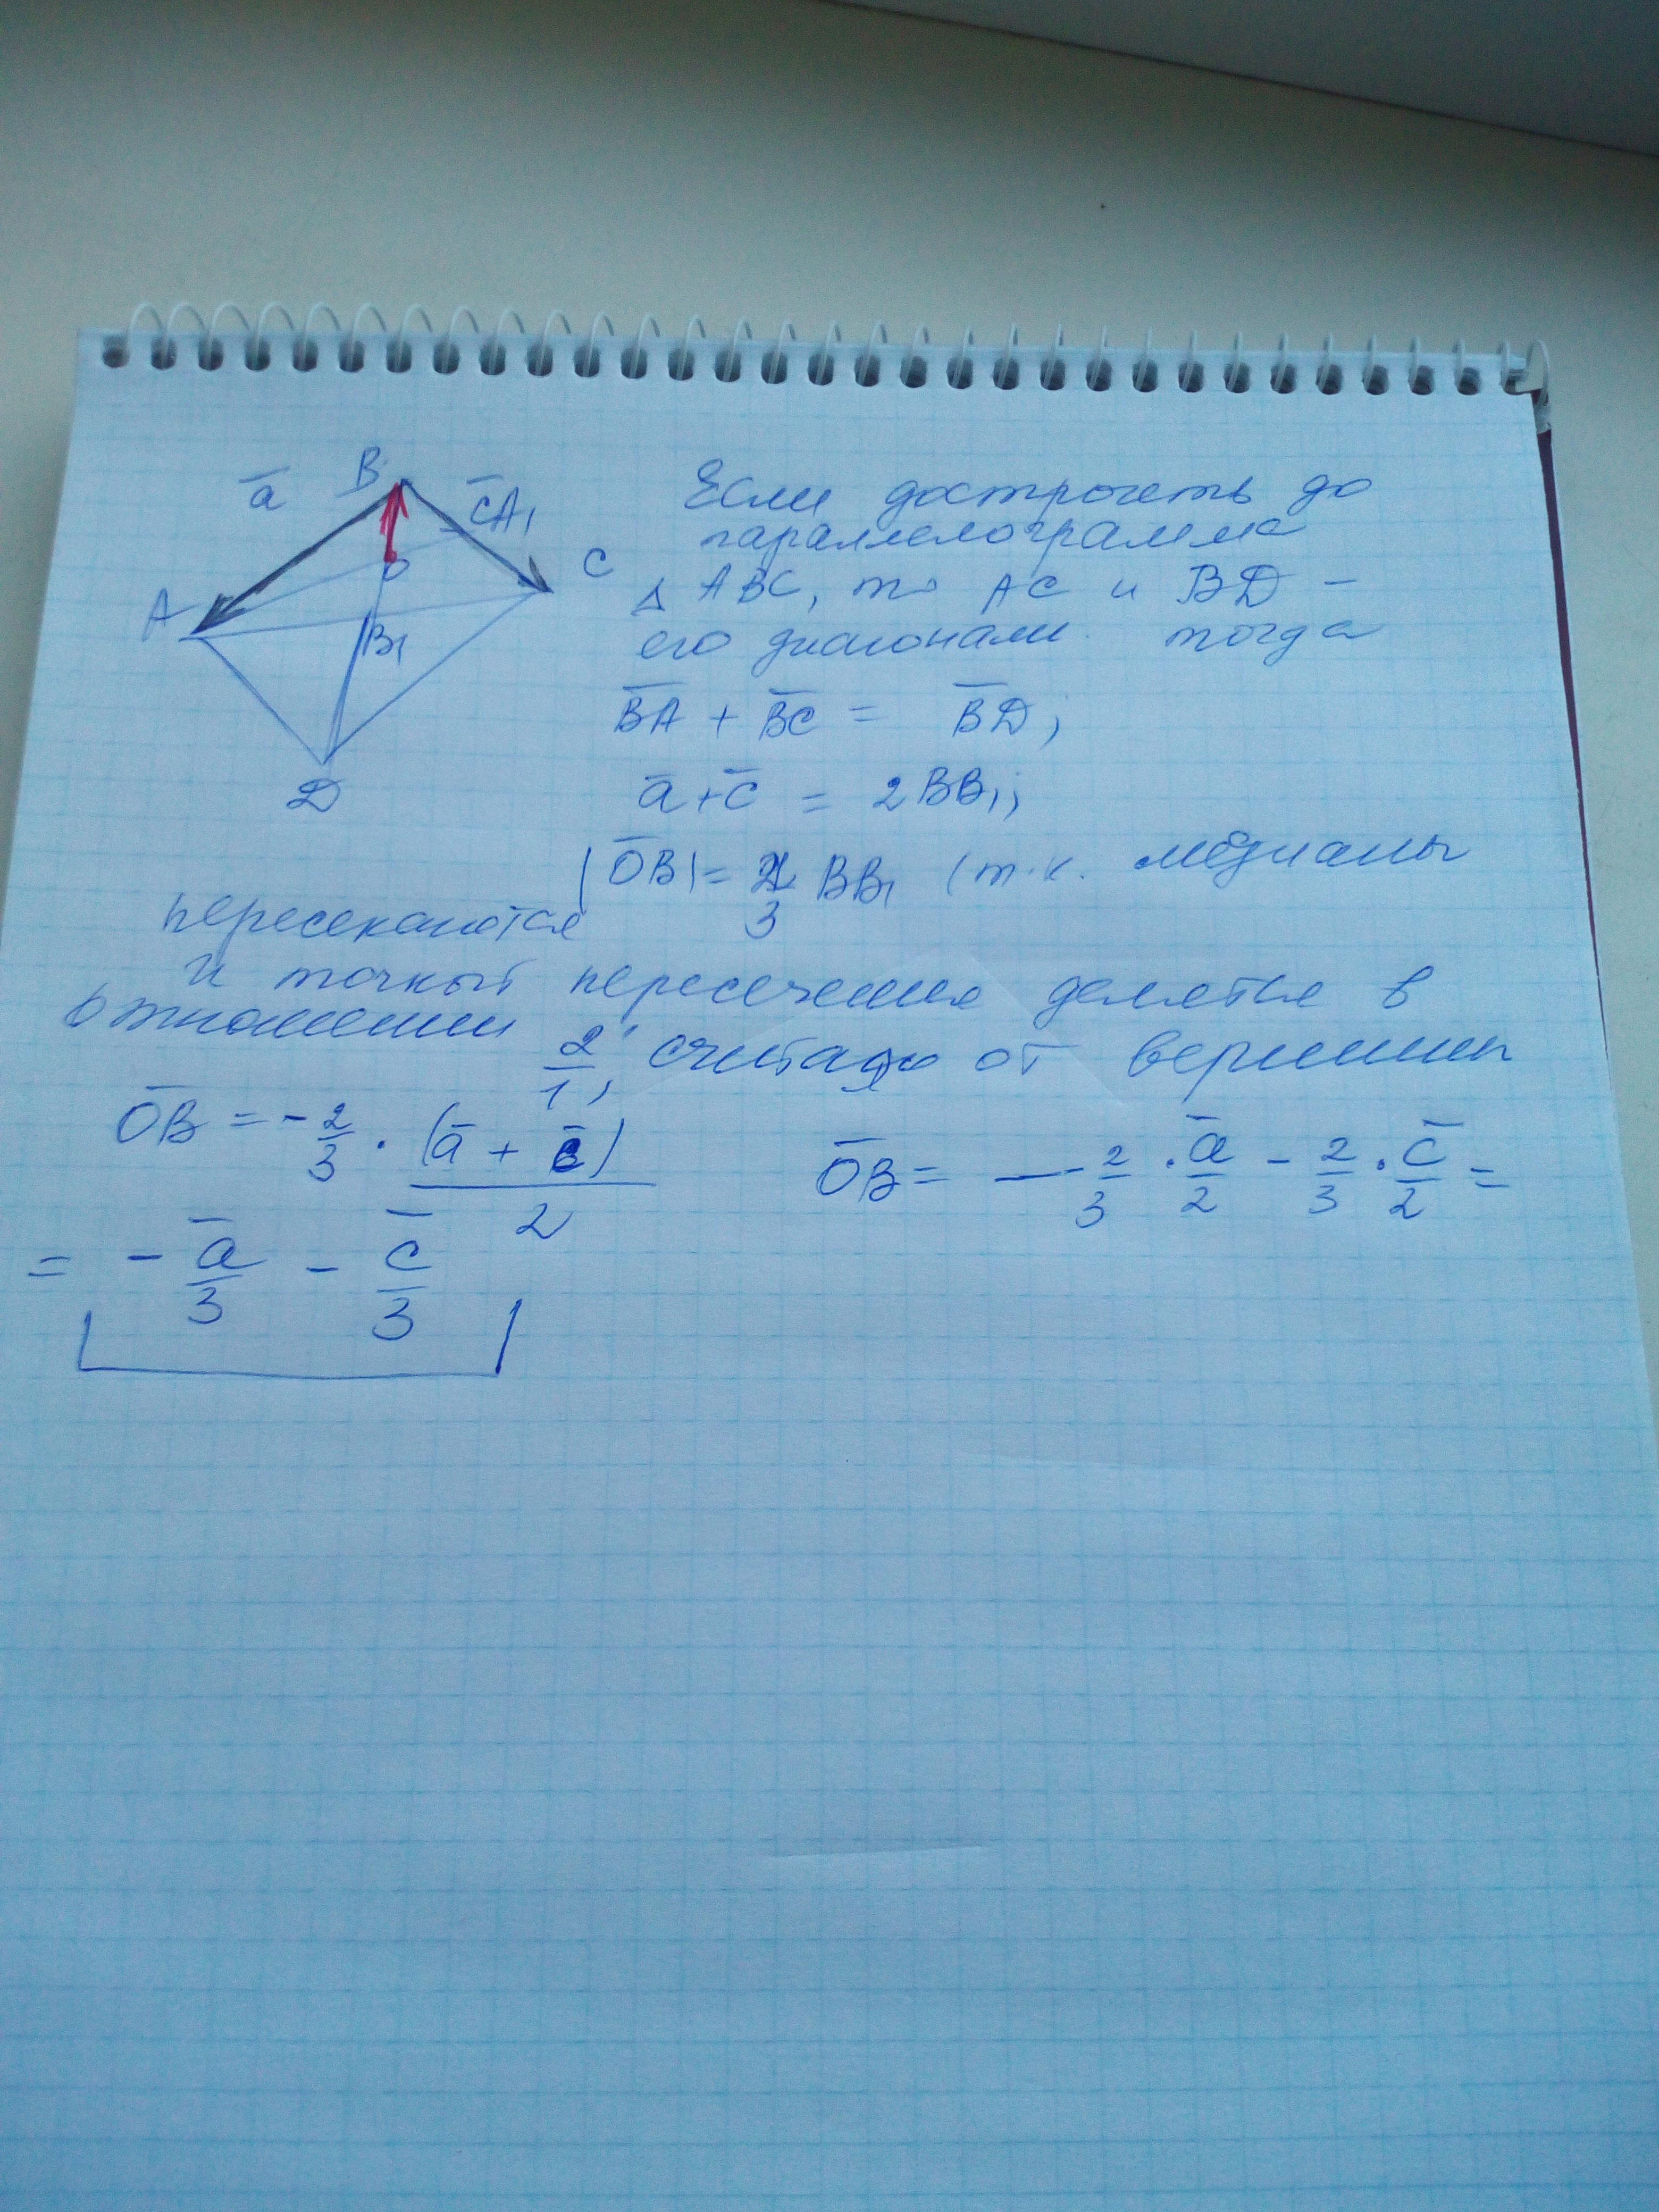 B
a̅
c̅
A₁
C
A
O
B₁
D
Если достроить до
параллелограмма
Δ ABC, то AC и BD –
его диагонали. тогда
B̅A̅ + B̅C̅ = B̅D̅;
a̅ + c̅ = 2BB₁;
|O̅B̅| = 2/3 BB₁ (т.к. медианы
пересекаются
и точкой пересечения делятся в
отношении 2/1, считая от вершины
O̅B̅ = - 2/3 · (a̅ + c̅)/2
O̅B̅ = - 2/3 · a̅/2 - 2/3 · c̅/2 =
= - a̅/3 - c̅/3